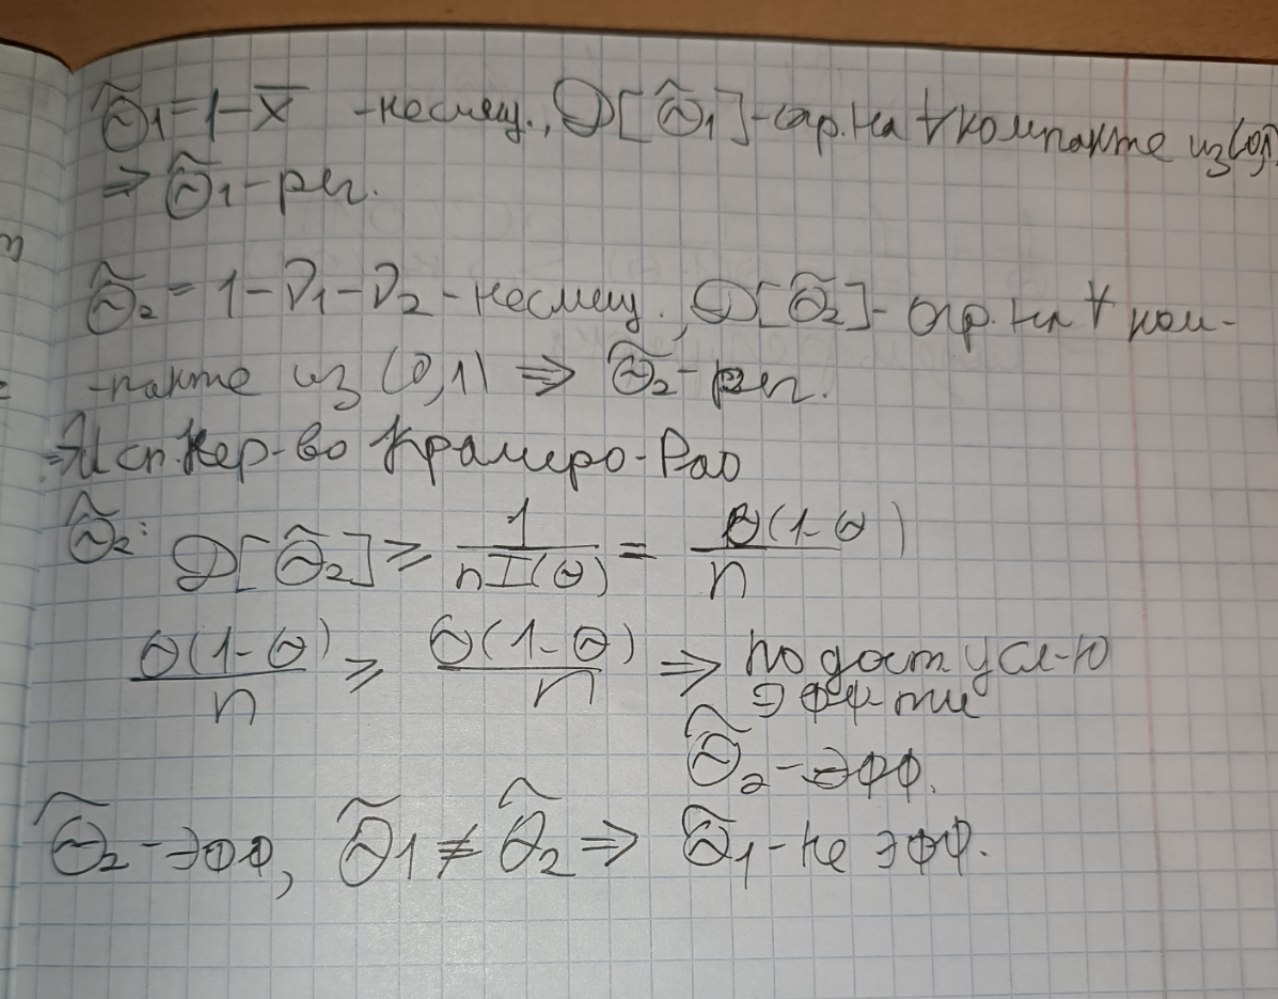 Θ̃1 = 1 - X̅ - несмещ., D[Θ̃1] - огр. на ∀ компакте из (0,1)
⇒ Θ̃1 - рег.
Θ̃2 = 1 - ν1 - ν2 - несмещ., D[Θ̃2] - огр. на ∀ ком-
-пакте из (0,1) ⇒ Θ̃2 - рег.
⇒ Исп. нер-во Крамера-Рао
Θ̃2: D[Θ̃2] ≥ 1/(nI(Θ)) = Θ(1-Θ)/n
Θ(1-Θ)/n ≥ Θ(1-Θ)/n ⇒ по дост усл-ю
эфф-ти
Θ̃2 - эфф.
Θ̃2 - эфф, Θ̃1 ≠ Θ̃2 ⇒ Θ̃1 - не эфф.